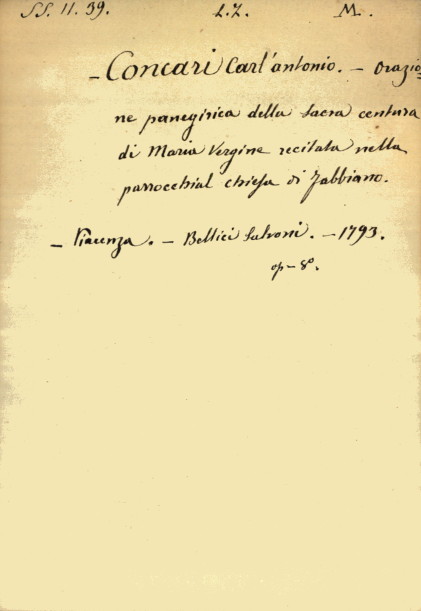 SS. 11. 39. L.Z. M.
- Concari Carl'antonio. - Orazio=
ne panegirica della sacra centura
di Maria Vergine recitata nella
parrocchial chiesa di Zabbiano.
- Piacenza. - Bellici Salvoni. - 1793.
op - 8°.